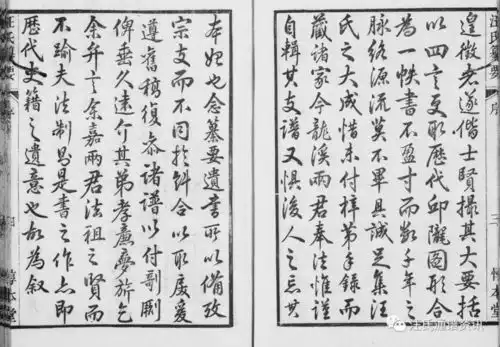 遑徵文遂偕士賢撮其大要括
以四言更取歷代邱隴圖形合
為一帙書不盈寸而數千年之
脉絡源流莫不畢具誠足集汪
氏之大成惜未付梓第手錄而
藏諸家今龍溪兩君奉法惟謹
自輯其支譜又懼後人之忘其
本始也念纂要遺書所以備攷
宗支而不同於糾合以取戾爰
遵舊稿復叅諸譜以付剞劂
俾垂久遠介其弟孝廉夢旂乞
余弁言余嘉兩君法祖之賢而
不踰夫法制則是書之作亦即
歷代史籍之遺意也故為叙
本堂